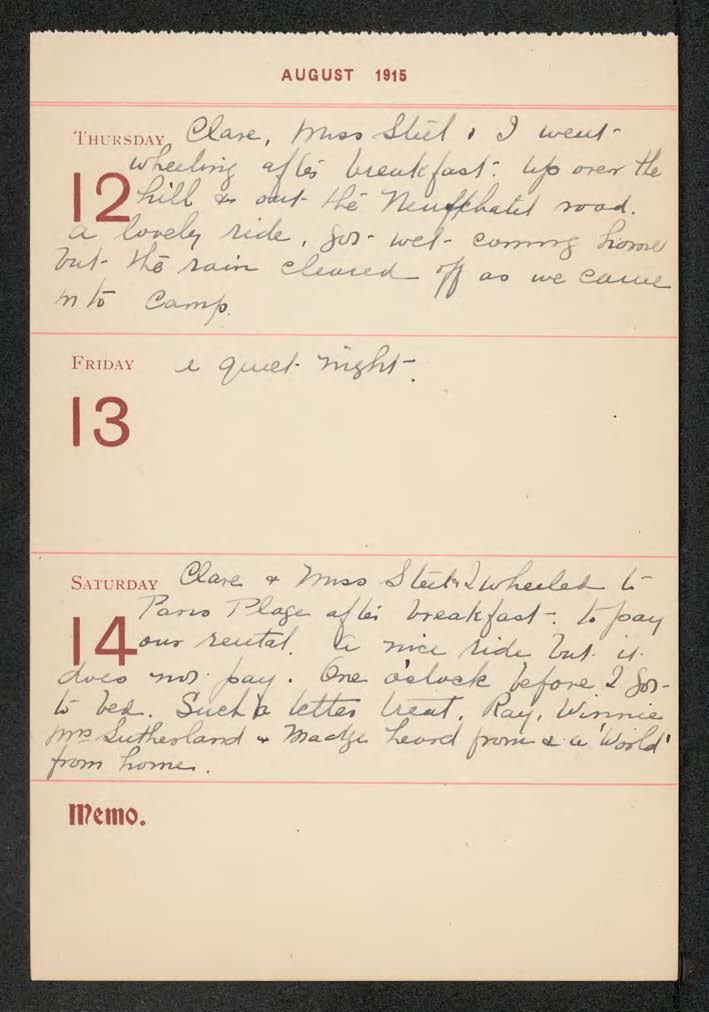 AUGUST 1915
THURSDAY Clare, Miss Steel & I went
wheeling after breakfast. Up over the
12 hill & out the Neuffchatel road.
a lovely ride, got wet coming home
but the rain cleared off as we came
in to Camp.
FRIDAY a quiet night.
13
SATURDAY Clare & Miss Steel & I wheeled to
Paris Plage after breakfast. to pay
14 our rental. A nice ride but it
does not pay. One o'clock before I got
to bed. Such a letter treat. Ray, Winnie
Mrs Sutherland & Madge heard from & a 'World'
from home.
Memo.